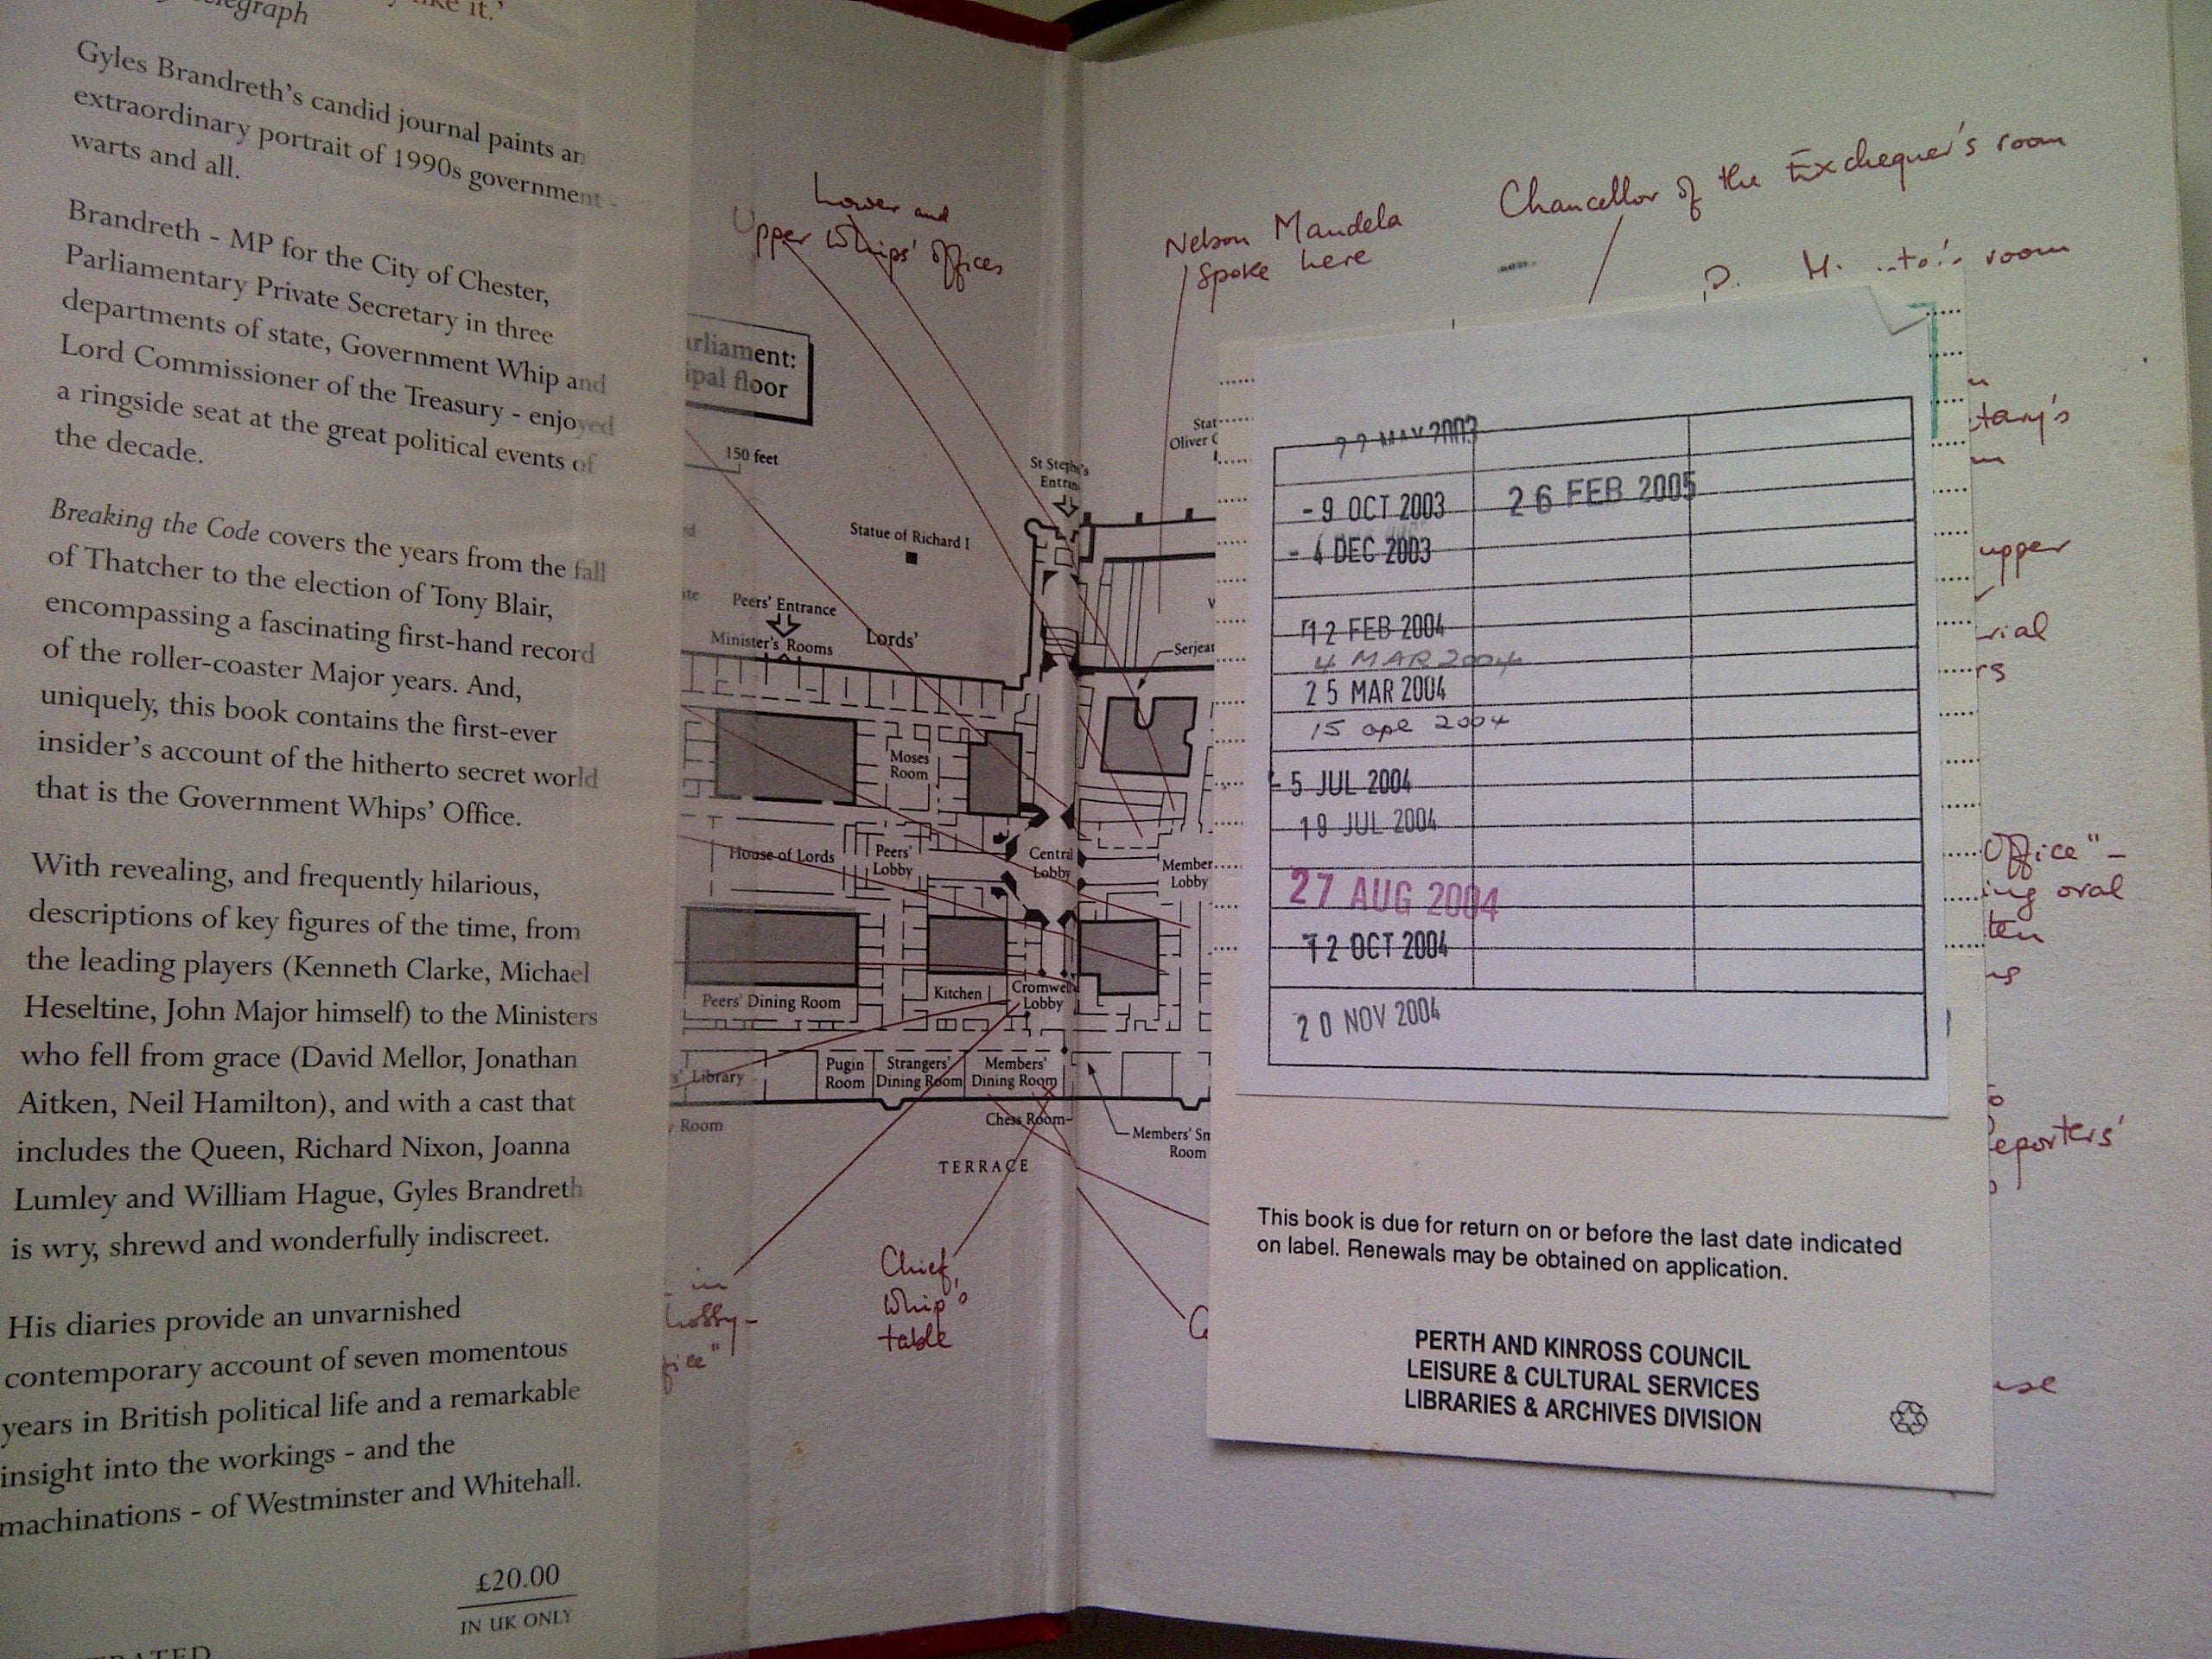 egraph
like it.'
Gyles Brandreth's candid journal paints an
extraordinary portrait of 1990s government -
warts and all.
Brandreth - MP for the City of Chester,
Parliamentary Private Secretary in three
departments of state, Government Whip and
Lord Commissioner of the Treasury - enjoyed
a ringside seat at the great political events of
the decade.
Breaking the Code covers the years from the fall
of Thatcher to the election of Tony Blair,
encompassing a fascinating first-hand record
of the roller-coaster Major years. And,
uniquely, this book contains the first-ever
insider's account of the hitherto secret world
that is the Government Whips' Office.
With revealing, and frequently hilarious,
descriptions of key figures of the time, from
the leading players (Kenneth Clarke, Michael
Heseltine, John Major himself) to the Ministers
who fell from grace (David Mellor, Jonathan
Aitken, Neil Hamilton), and with a cast that
includes the Queen, Richard Nixon, Joanna
Lumley and William Hague, Gyles Brandreth
is wry, shrewd and wonderfully indiscreet.
His diaries provide an unvarnished
contemporary account of seven momentous
years in British political life and a remarkable
insight into the workings - and the
machinations - of Westminster and Whitehall.
£20.00
IN UK ONLY
Lower and
Upper Whips' offices
rliament:
ipal floor
150 feet
St Stephen's
Entran
Statue of Richard I
Peers' Entrance
Minister's Rooms
Lords'
Moses
Room
House of Lords
Peers'
Lobby
Central
Lobby
Member
Lobby
Peers' Dining Room
Kitchen
Cromwell
Lobby
s' Library
Pugin
Room
Strangers'
Dining Room
Members'
Dining Room
Room
Chess Room
Members' Sm
Room
TERRACE
in
lobby-
fice"
Chief
Whip's
table
Nelson Mandela
spoke here
Chancellor of the Exchequer's room
room
Stat
Oliver C
Serjea
tary's
upper
rial
rs
Office" -
ing oral
ten
eporters'
use
22 MAY 2003
- 9 OCT 2003
26 FEB 2005
- 4 DEC 2003
12 FEB 2004
4 MAR 2004
25 MAR 2004
15 apl 2004
5 JUL 2004
19 JUL 2004
27 AUG 2004
12 OCT 2004
20 NOV 2004
This book is due for return on or before the last date indicated
on label. Renewals may be obtained on application.
PERTH AND KINROSS COUNCIL
LEISURE & CULTURAL SERVICES
LIBRARIES & ARCHIVES DIVISION